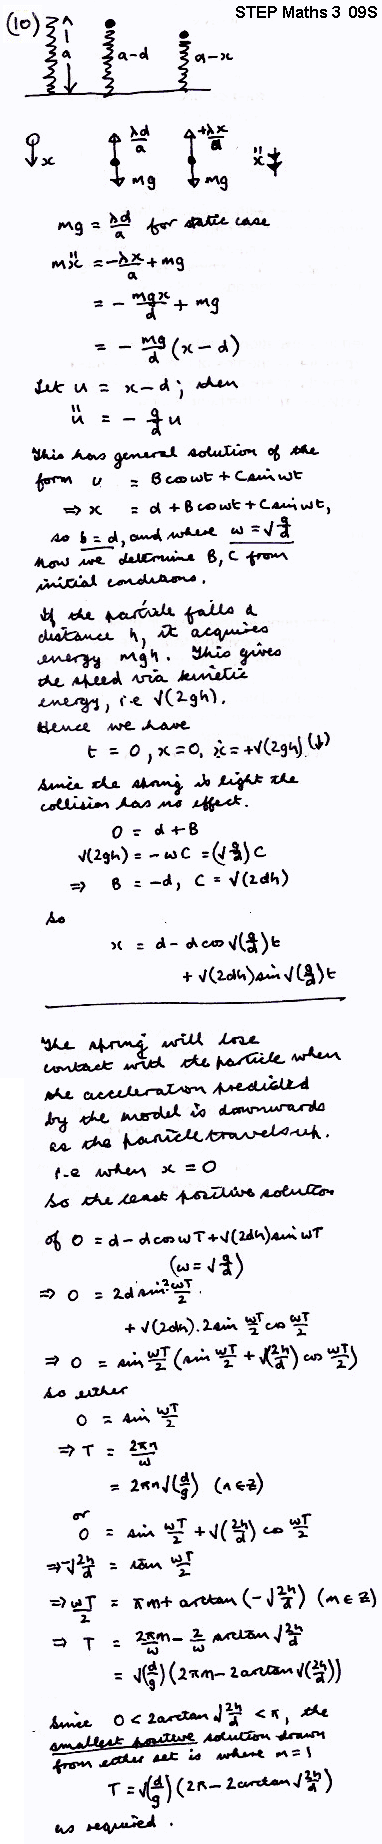 STEP Maths 3 09S
(10) a a-d a-x
x λd/a mg +λx/a mg ẍ
mg = λd/a for static case
mẍ = -λx/a + mg
= - mgx/d + mg
= - mg/d (x-d)
Let u = x-d; then
ü = - g/d u
This has general solution of the
form u = B cos wt + C sin wt
⇒ x = d + B cos wt + C sin wt,
so b = d, and where w = √g/d
Now we determine B, C from
initial conditions.
If the particle falls a
distance h, it acquires
energy mgh. This gives
the speed via kinetic
energy, i.e √(2gh).
Hence we have
t = 0, x = 0, ẋ = +√(2gh) (↓)
Since the spring is light the
collision has no effect.
0 = d + B
√(2gh) = -wC = (√g/d) C
⇒ B = -d, C = √(2dh)
So
x = d - d cos √(g/d) t
+ √(2dh) sin √(g/d) t
The spring will lose
contact with the particle when
the acceleration predicted
by the model is downwards
as the particle travels up.
i.e when x = 0
So the least positive solution
of 0 = d - d cos wT + √(2dh) sin wT
(w = √g/d)
⇒ 0 = 2d sin² wT/2
+ √(2dh). 2 sin wT/2 cos wT/2
⇒ 0 = sin wT/2 (sin wT/2 + √(2h/d) cos wT/2)
So either
0 = sin wT/2
⇒ T = 2πn/w
= 2πn √(d/g) (n ∈ Z)
or
0 = sin wT/2 + √(2h/d) cos wT/2
⇒ -√2h/d = tan wT/2
⇒ wT/2 = πm + arctan (-√2h/d) (m ∈ Z)
⇒ T = 2πm/w - 2/w arctan √2h/d
= √(d/g) (2πm - 2 arctan √(2h/d))
Since 0 < 2 arctan √2h/d < π, the
smallest positive solution drawn
from either set is where m = 1
T = √(d/g) (2π - 2 arctan √2h/d)
as required.